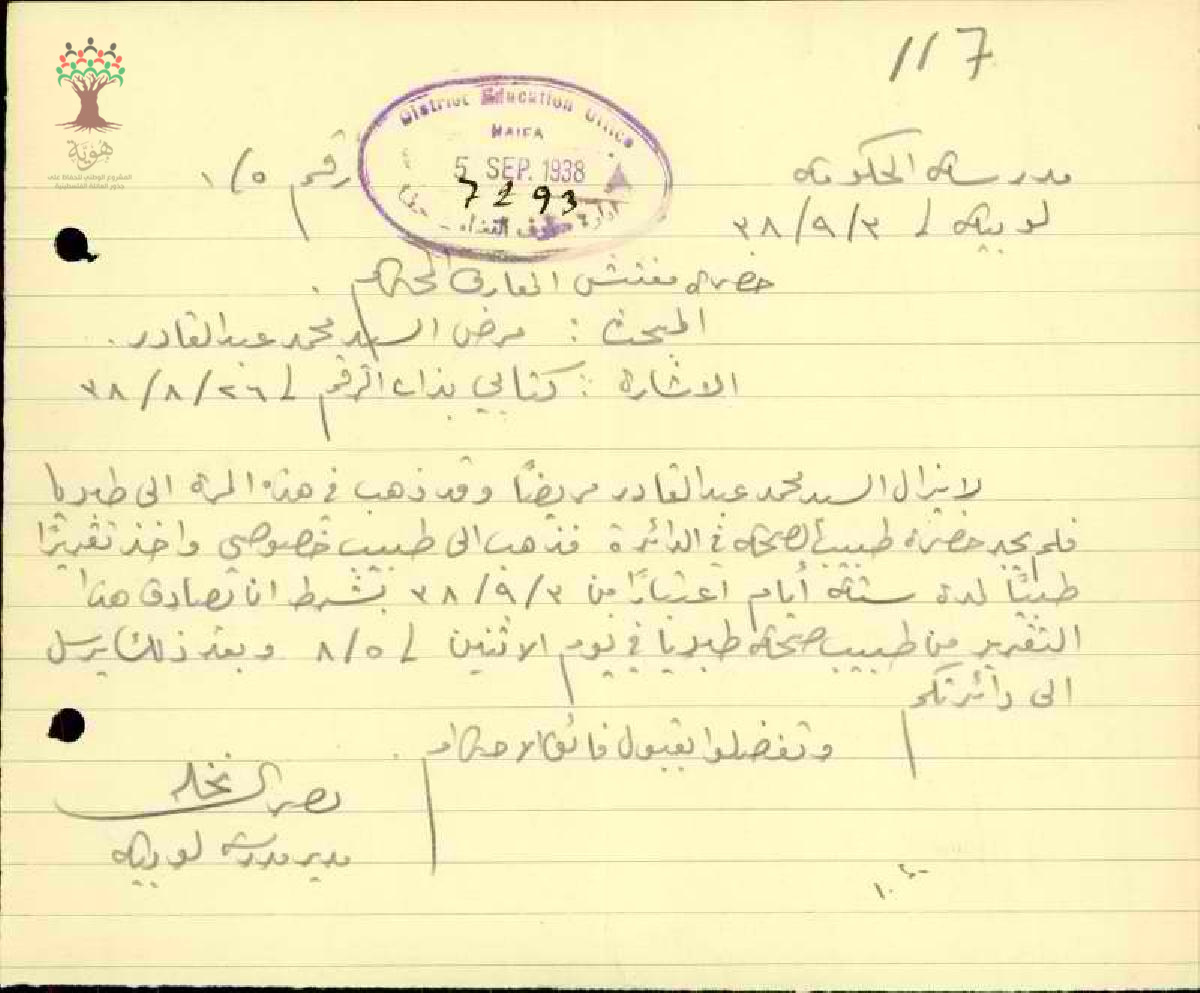 117
هوية
المشروع الوطني للحفاظ على
جذور العائلة الفلسطينية
District Education Office
HAIFA
5 SEP. 1938
7293
ادارة معارف اللواء حيفا
مدرسة الحكومة رقم ١/٥
لوبيه في ٣٨/٩/٣
حضرة مفتش المعارف المحترم .
المبحث : مرض السيد محمد عبد القادر .
الاشارة : كتابي بذات الرقم في ٣٨/٨/٢٦
لا يزال السيد محمد عبد القادر مريضًا وقد ذهب في هذه المرة الى طبريا
فلم يجد حضرة طبيب الصحة في الدائرة فذهب الى طبيب خصوصي واخذ تقريرًا
طبيًا لمدة ستة أيام اعتبارًا من ٣٨/٩/٣ بشرط ان تصادق هذا
التقرير من طبيب صحة طبريا في يوم الاثنين في ٨/٥ وبعد ذلك يرسل
الى دائرتكم
وتفضلوا بقبول فائق الاحترام .
نخله
مدير مدرسة لوبيه